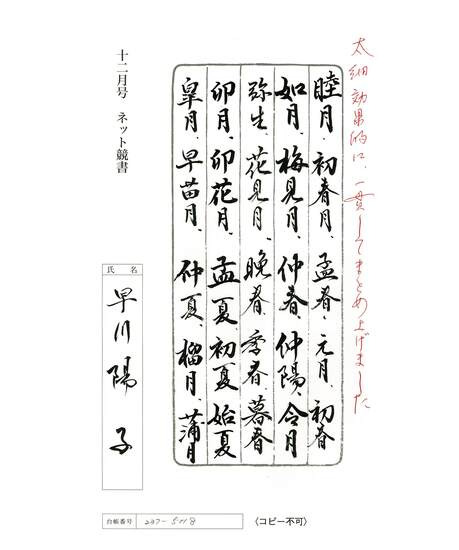 太細効果的に、一貫してまとめ上げました
睦月、初春月、孟春、元月、初春
如月、梅見月、仲春、仲陽、令月
弥生、花見月、晩春、季春、暮春
卯月、卯花月、孟夏、初夏、始夏
皐月、早苗月、仲夏、榴月、蒲月
十二月号 ネット競書
氏名
早川陽子
台帳番号 237-5018
〈コピー不可〉